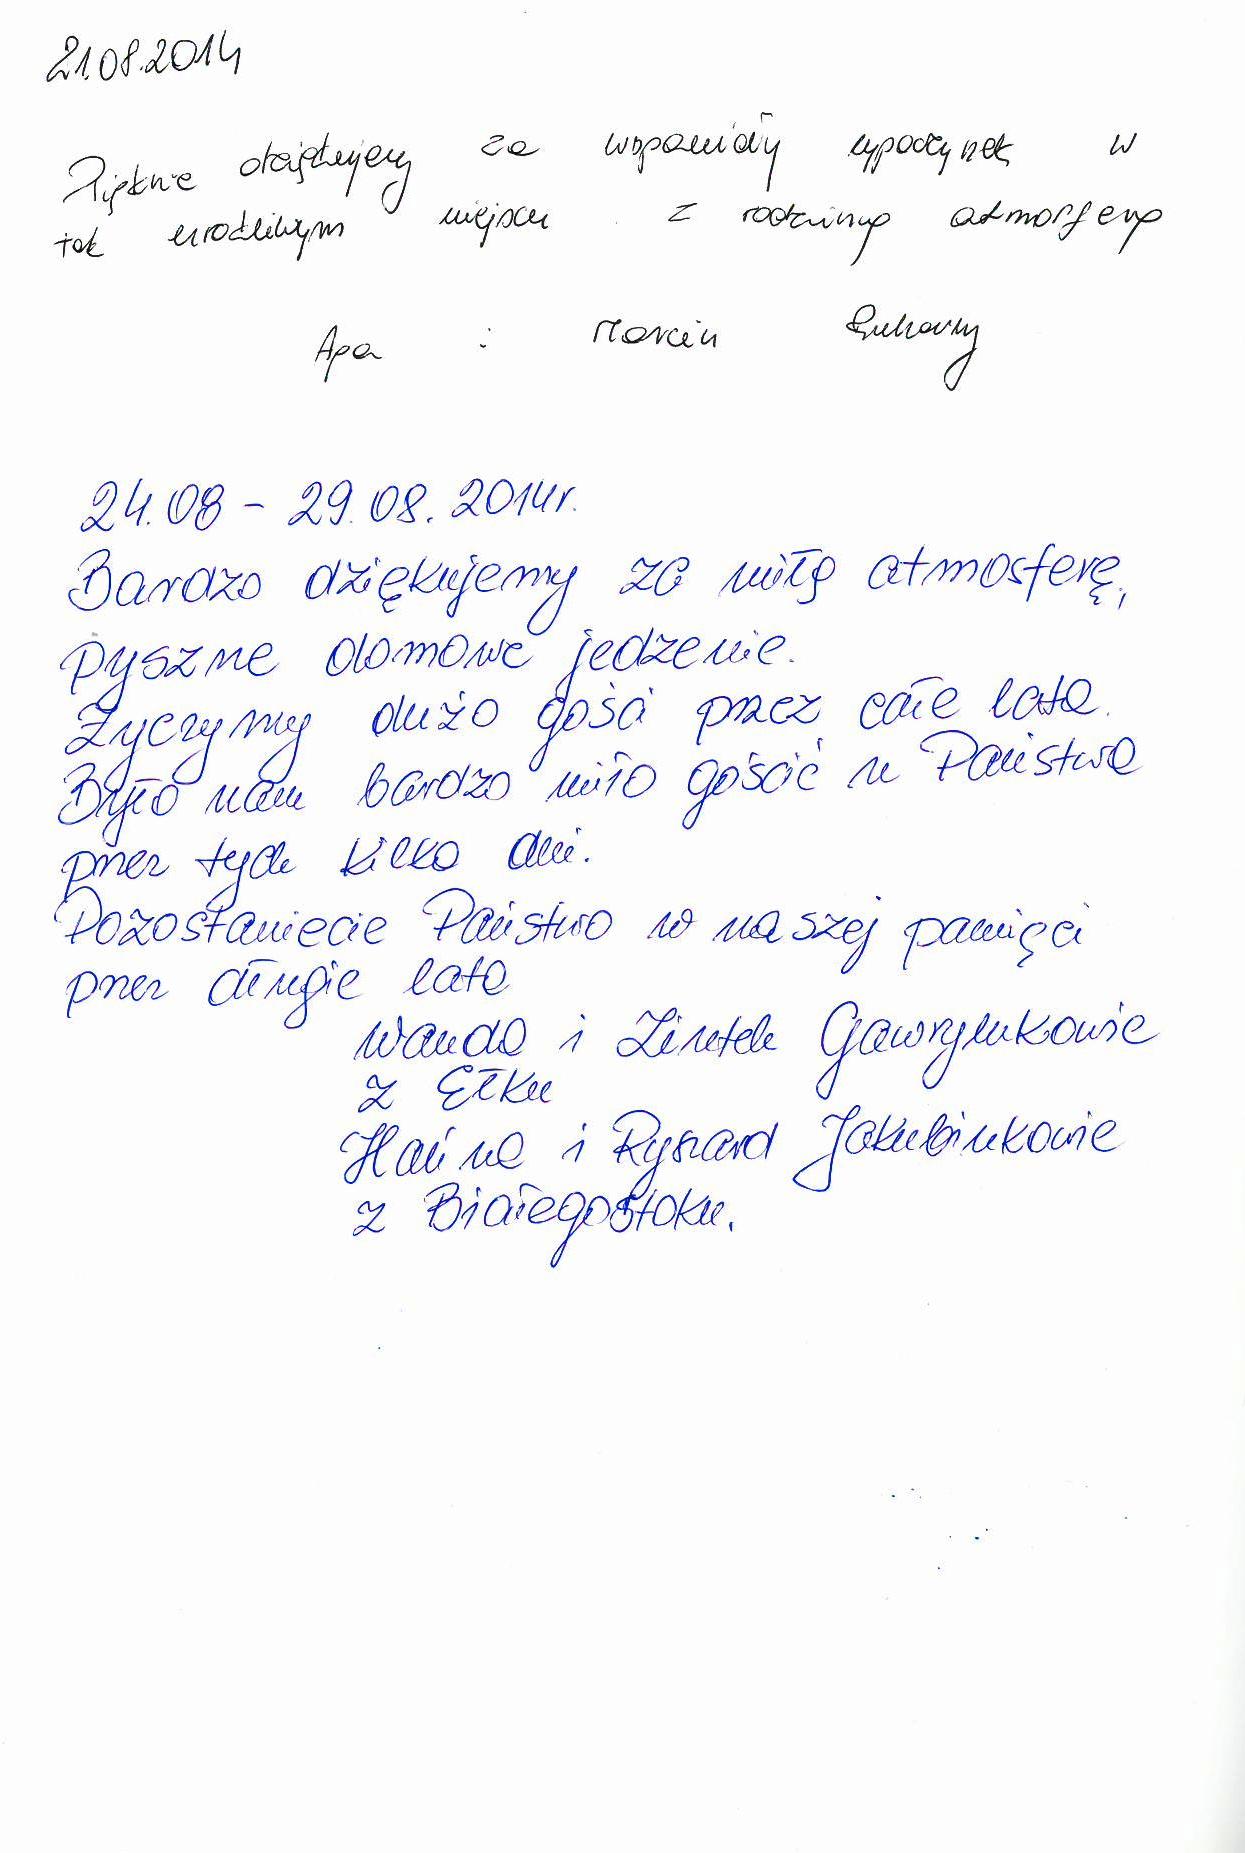 21.08.2014
Pięknie dziękujemy za wspaniały wypoczynek w
tak urodziwym miejscu z rodzinną atmosferą
Aga i Marcin
24.08 - 29.08. 2014r.
Bardzo dziękujemy za miłą atmosferę,
pyszne domowe jedzenie.
Życzymy dużo gości przez całe lata.
Było nam bardzo miło gościć u Państwa
przez tych kilka dni.
Pozostaniecie Państwo w naszej pamięci
przez długie lata
Wanda i Ziutek Gawrylukowie
z Ełku
Halina i Ryszard Jakubiukowie
z Białegostoku.